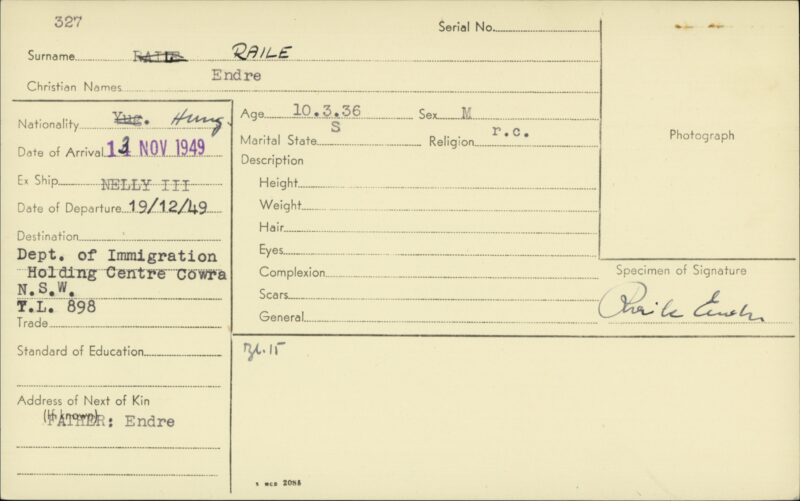 327
Serial No.
Surname RAILE RAILE
Christian Names Endre
Nationality Yug. Hung.
Date of Arrival 13 NOV 1949
Ex Ship NELLY III
Date of Departure 19/12/49
Destination
Dept. of Immigration
Holding Centre Cowra
N.S.W.
T.L. 898
Trade
Standard of Education
Address of Next of Kin
(If known)
FATHER: Endre
Age 10.3.36 Sex M
Marital State S Religion r.c.
Description
Height
Weight
Hair
Eyes
Complexion
Scars
General
Photograph
Specimen of Signature
Raile Endre
2085